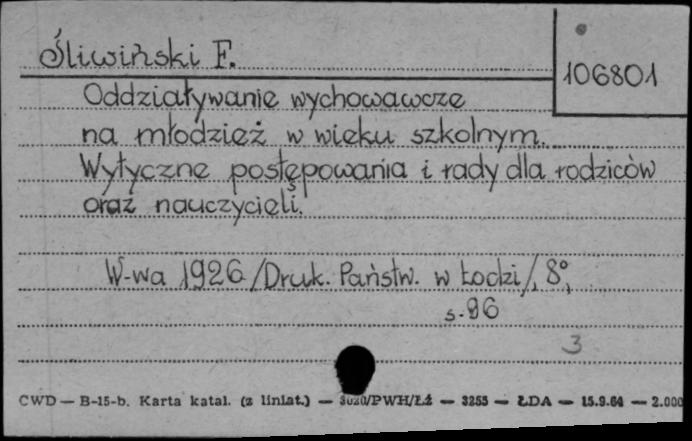 Śliwiński F.
106801
Oddziaływanie wychowawcze
na młodzież w wieku szkolnym.
Wytyczne postępowania i rady dla rodziców
oraz nauczycieli.
W-wa 1926 /Druk. Państw. w Łodzi/, 8°,
s. 96
3
CWD — B-15-b. Karta katal. (z liniat.) — 3020/PWH/Łź — 3255 — ŁDA — 15.9.64 — 2.000